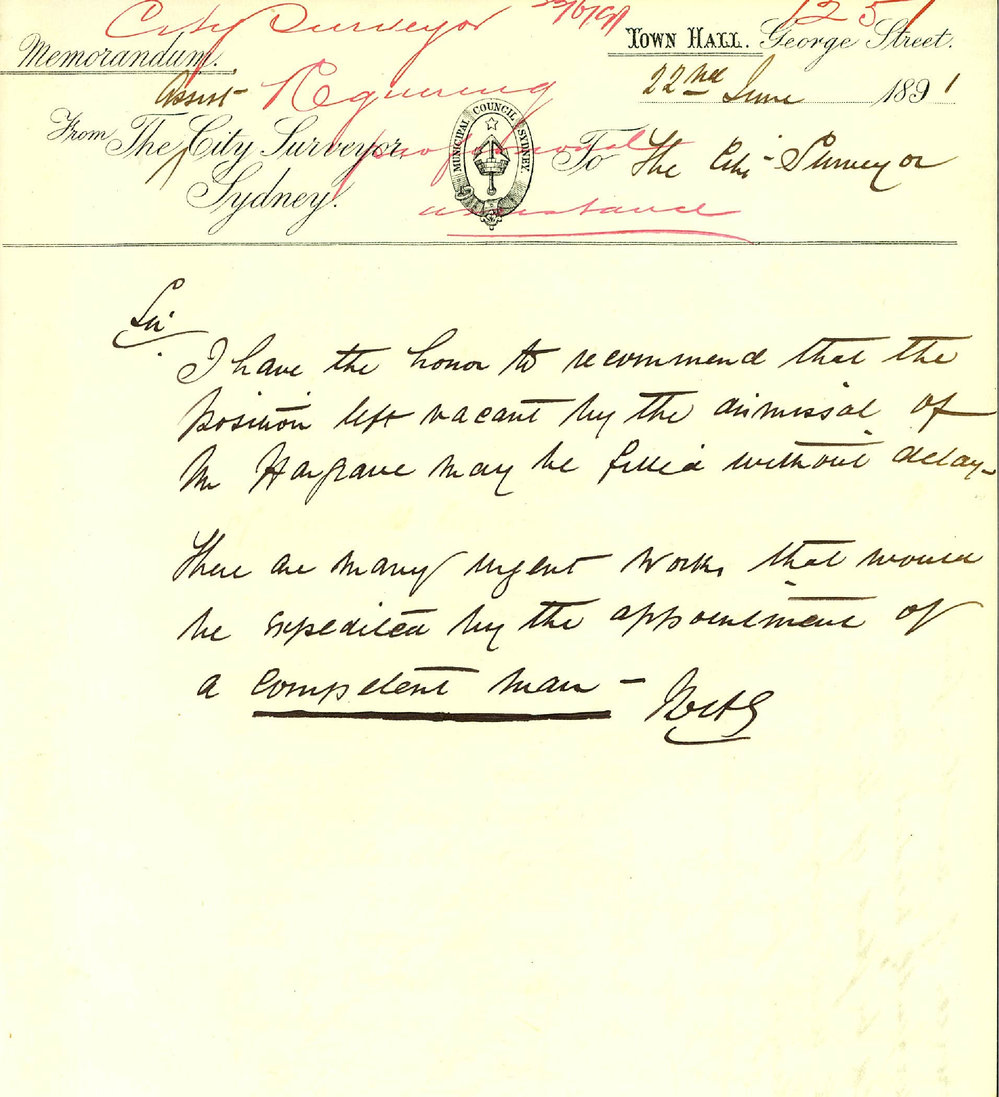 City Surveyor 22/6/91 1251
Memorandum.
TOWN HALL. George Street.
Assist Requiring
22nd June 1891
From The City Surveyor
professional
MUNICIPAL COUNCIL SYDNEY.
To The City Surveyor
Sydney.
assistance
Sir
I have the honor to recommend that the
position left vacant by the dismissal of
Mr Hargrave may be filled without delay-
There are many urgent works that would
be expedited by the appointment of
a competent man -